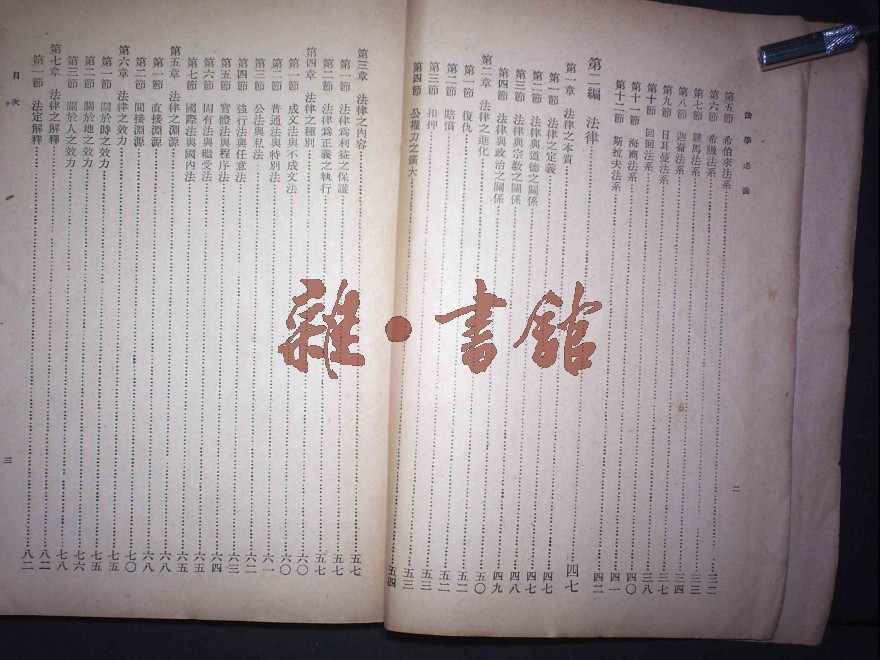 法學通論
第五節 希伯來法系……三二
第六節 希臘法系……三三
第七節 羅馬法系……三四
第八節 法系……三七
第九節 日耳曼法系……三八
第十節 回回法系……四〇
第十一節 海商法系……四一
第十二節 斯拉夫法系……四二
第二編 法律……四七
第一章 法律之本質……四七
第一節 法律之定義……四七
第二節 法律與道德之關係……四八
第三節 法律與宗教之關係……四九
第四節 法律與政治之關係……五〇
第二章 法律之進化……五二
第一節 復仇……五二
第二節 賠償……五三
第三節 扣押……五三
第四節 公權力之擴大……五四
二
第三章 法律之內容……五七
第一節 法律為利益之保護……五七
第二節 法律為正義之執行……五七
第四章 法律之種別……六〇
第一節 成文法與不成文法……六〇
第二節 普通法與特別法……六一
第三節 公法與私法……六二
第四節 強行法與任意法……六三
第五節 實體法與程序法……六四
第六節 固有法與繼受法……六五
第七節 國際法與國內法……六五
第五章 法律之淵源……六八
第一節 直接淵源……六八
第二節 間接淵源……七〇
第六章 法律之效力……七五
第一節 關於時之效力……七五
第二節 關於地之效力……七六
第三節 關於人之效力……七八
第七章 法律之解釋……八二
第一節 法定解釋……八二
目次
三
雜·書館